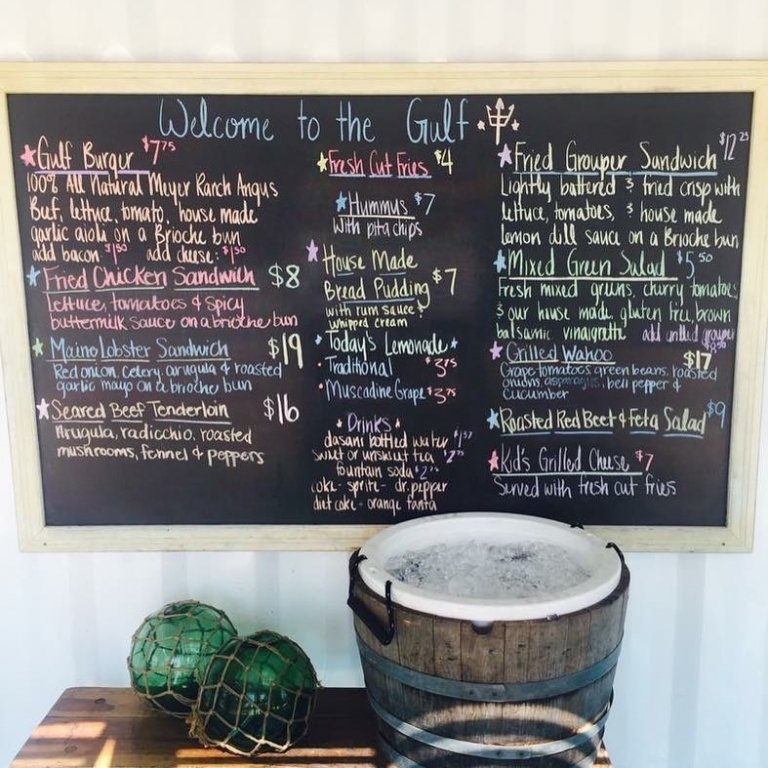 Welcome to the Gulf
Gulf Burger $7.75
100% All Natural Meyer Ranch Angus
Beef, lettuce, tomato, house made
garlic aioli on a Brioche bun
add bacon $1.50 add cheese: $1.50
Fried Chicken Sandwich $8
Lettuce, tomatoes & spicy
buttermilk sauce on a brioche bun
Maine Lobster Sandwich $19
Red onion, celery, arugula & roasted
garlic mayo on a brioche bun
Seared Beef Tenderloin $16
Arugula, radicchio, roasted
mushrooms, fennel & peppers
Fresh Cut Fries $4
Hummus $7
with pita chips
House Made
Bread Pudding $7
with rum sauce &
whipped cream
Today's Lemonade
Traditional $3.75
Muscadine Grape $3.75
Drinks
dasani bottled water
sweet or unsweet tea
fountain soda
coke - sprite - dr. pepper
diet coke - orange fanta
Fried Grouper Sandwich $12.25
Lightly battered & fried crisp with
lettuce, tomatoes, & house made
lemon dill sauce on a Brioche bun
Mixed Green Salad $5.50
Fresh mixed greens, cherry tomatoes
& our house made gluten free brown
balsamic vinaigrette add grilled grouper
Grilled Wahoo $17
Grape tomatoes, green beans, roasted
onions, asparagus, bell pepper &
cucumber
Roasted Red Beet & Feta Salad $9
Kid's Grilled Cheese $7
Served with fresh cut fries